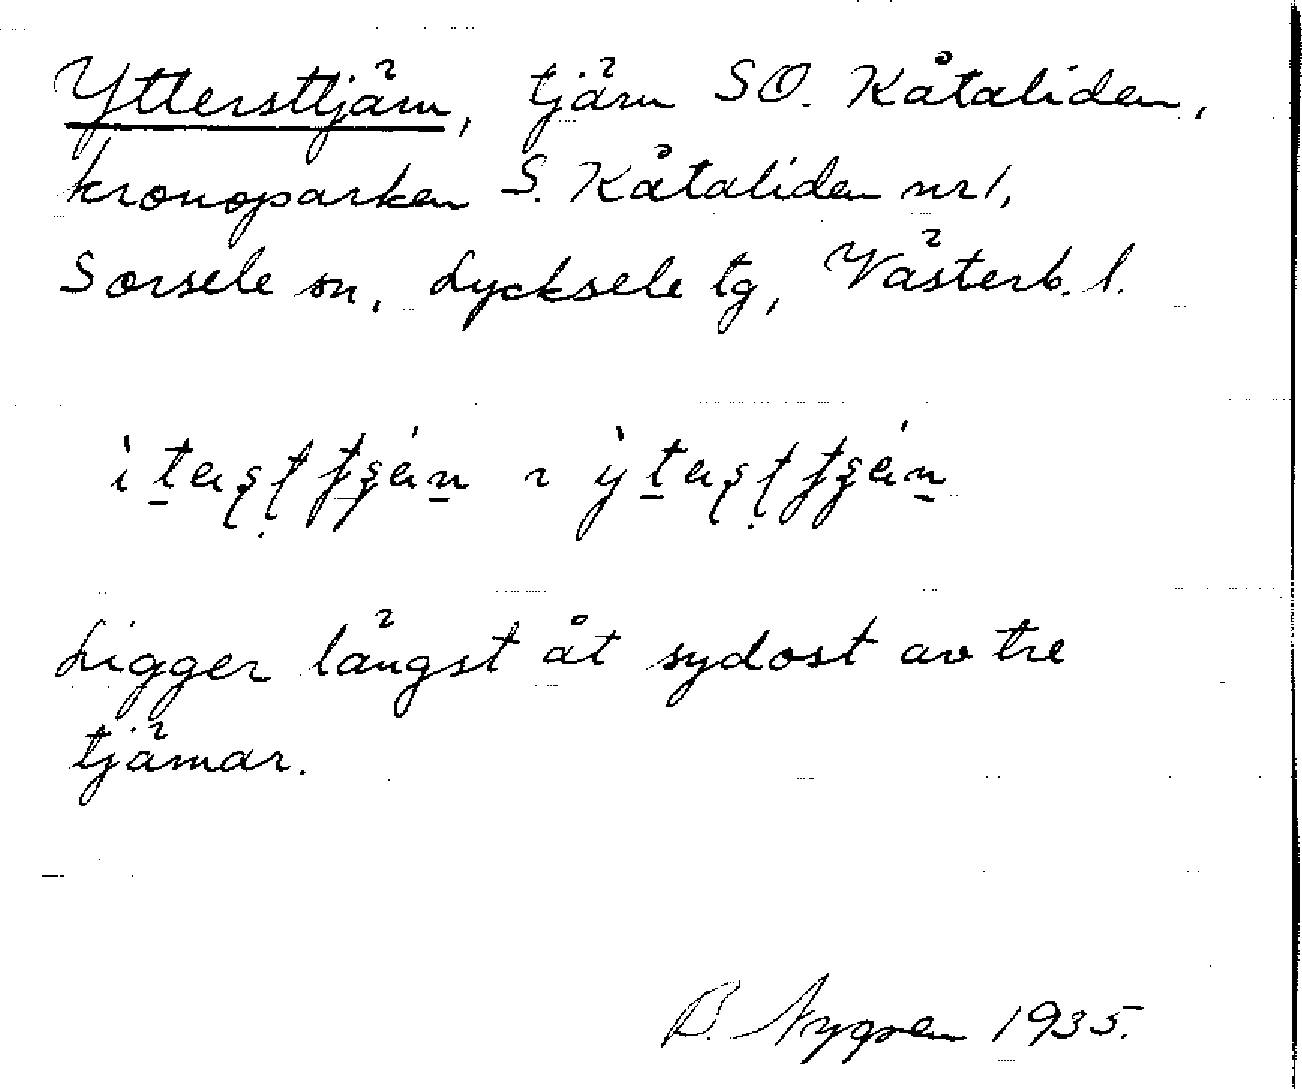 Yttersttjärn, tjärn SO. Kåtaliden,
kronoparken S. Kåtaliden nr 1,
Sorsele sn, Lycksele tg, Västerb. l.
Ligger längst åt sydost av tre
tjärnar.
B. Nygren 1935.